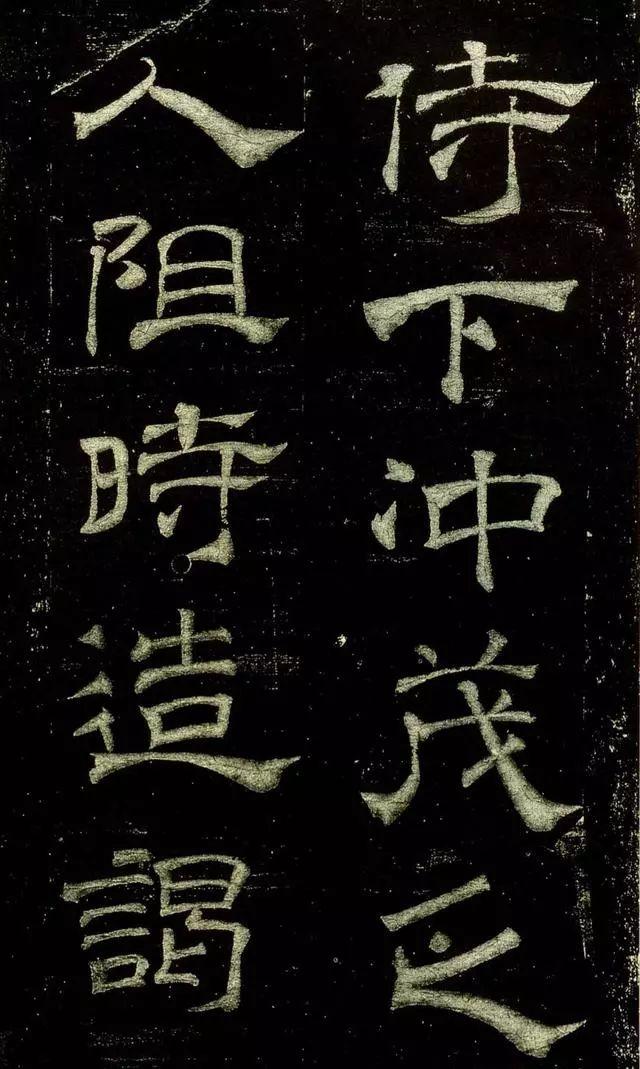 侍下冲茂之
人阻時造謁